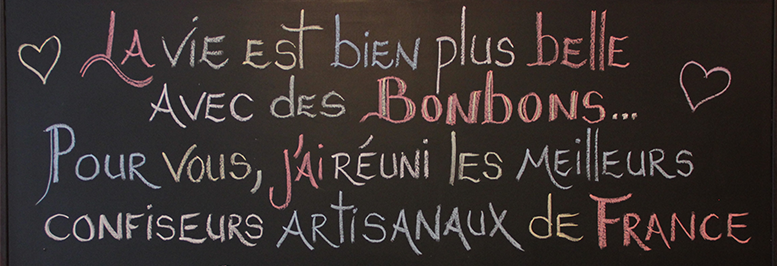 La vie est bien plus belle
avec des Bonbons...
Pour vous, j'ai réuni les meilleurs
confiseurs artisanaux de France